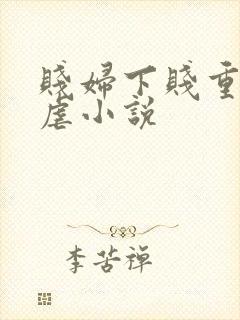 賤婦下賤重
虐小說
李苦禪